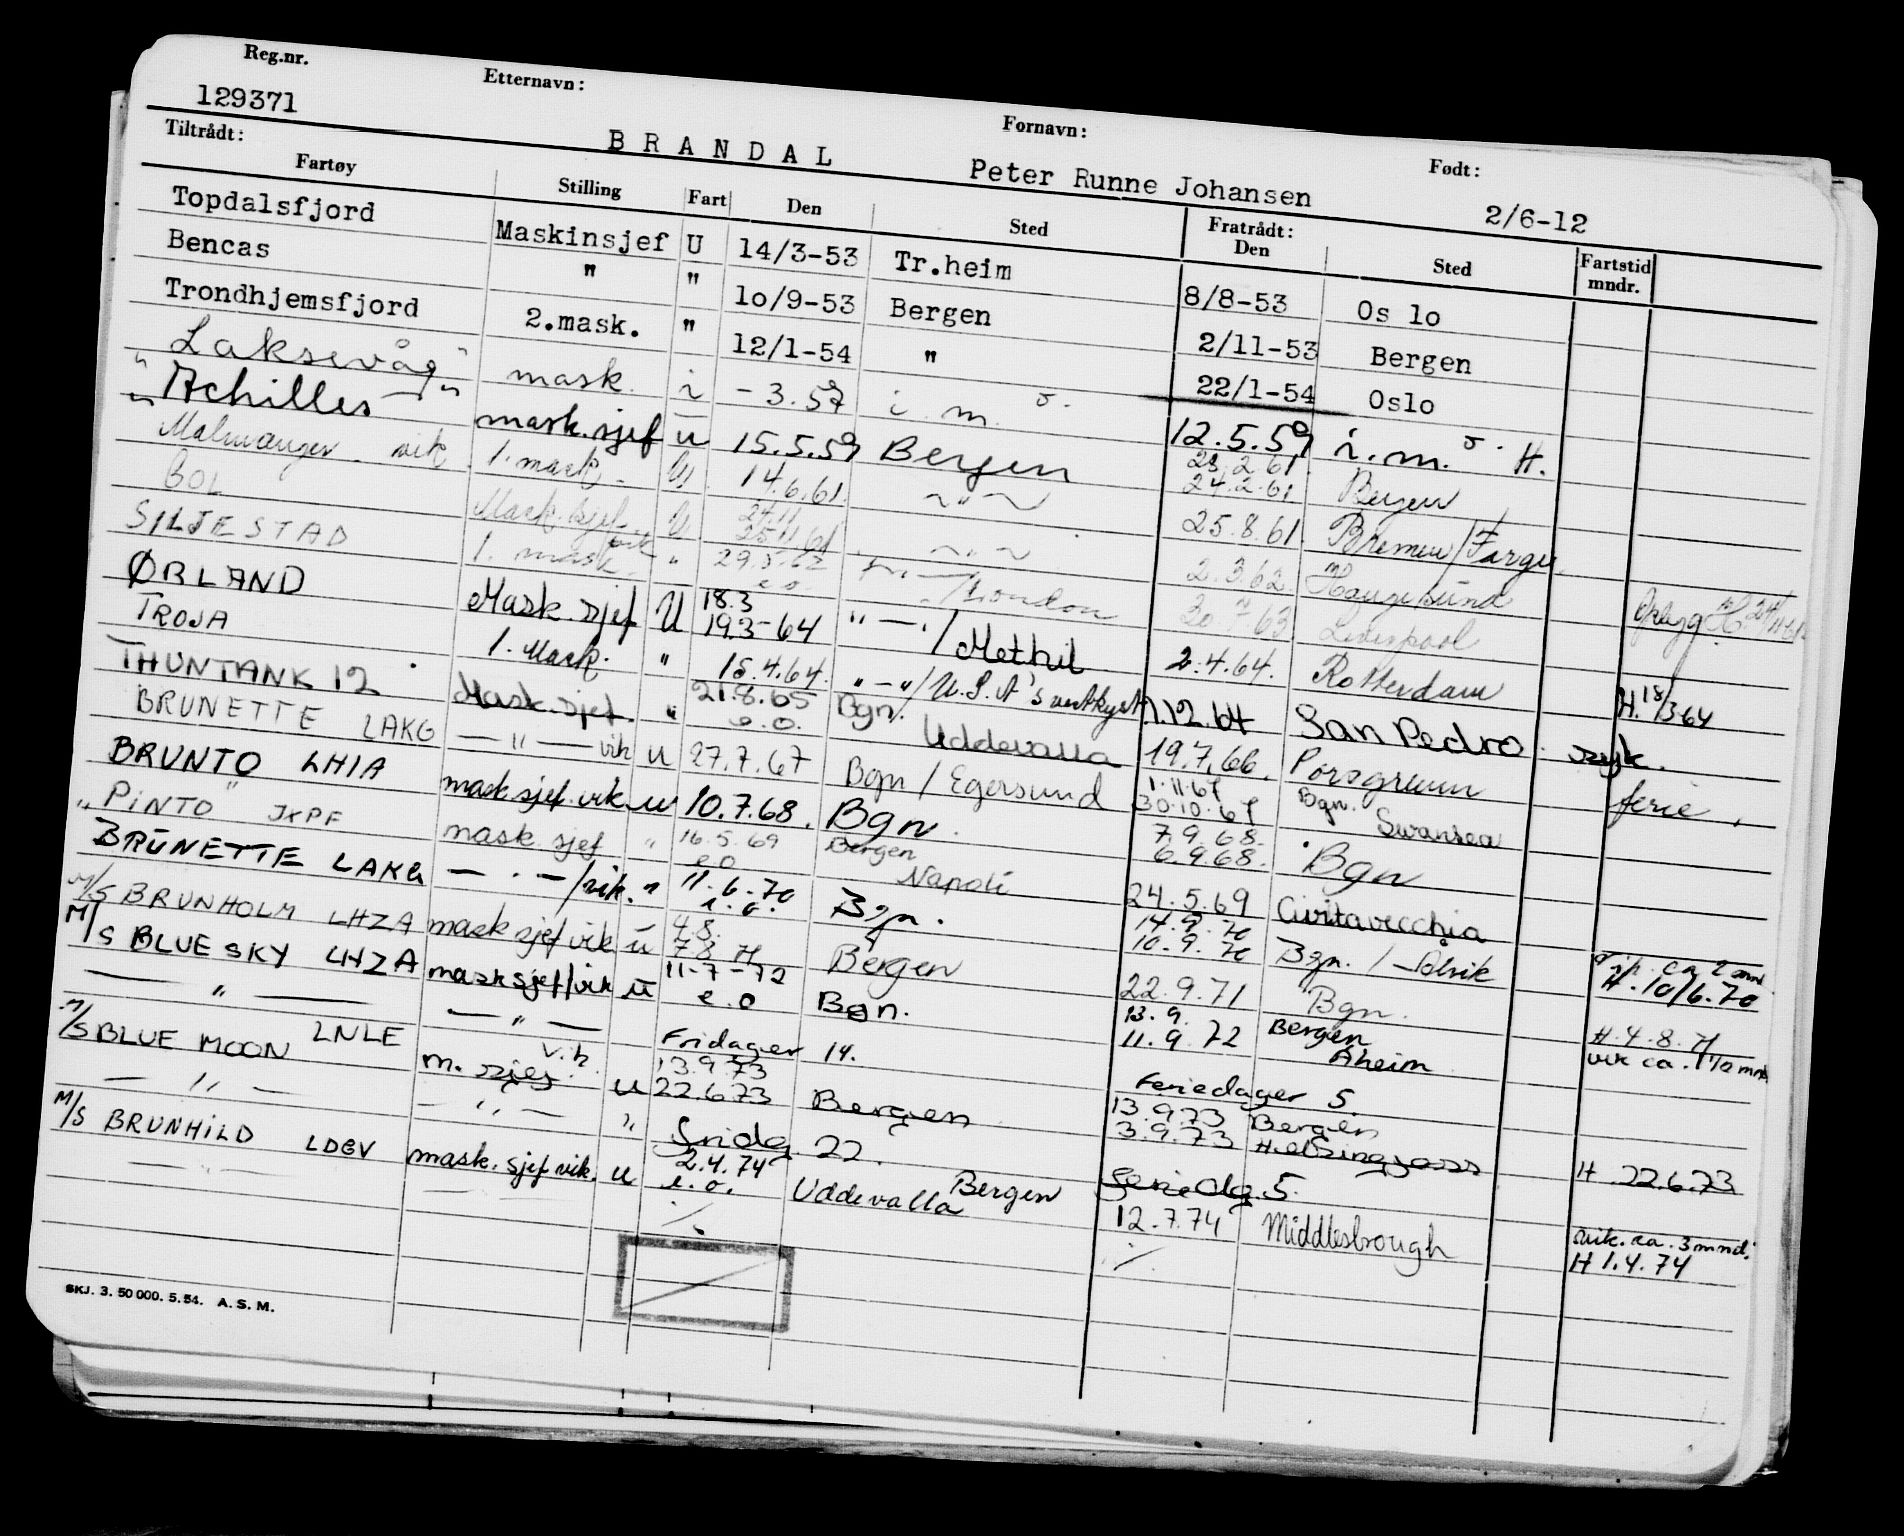 Reg.nr. Etternavn: Fornavn: Født:
129371 BRANDAL Peter Runne Johansen 2/6-12
Tiltrådt: Fratrådt:
Fartøy Stilling Fart Den Sted Den Sted Fartstid mndr.
Topdalsfjord Maskinsjef U 14/3-53 Tr.heim 8/8-53 Os lo
Bencas " " 1o/9-53 Bergen 2/11-53 Bergen
Trondhjemsfjord 2.mask. " 12/1-54 " 22/1-54 Oslo
"Laksevåg" mask. i - 3.59 i.m. 12.5.59 i.m. H.
"Achilles" mask.sjef u 15.5.59 Bergen 23.2.61. 24.2.61 Bergen
Malmanger vik 1. mask. U 14.6.61. ~"~ 25.8.61. Bremen/Farge
BOL Mask.sjef vik U 24.11 25.11.61 ~"~ 2.3.62 Haugesund H. 24/11-61
SILJESTAD 1. mask. " 29.5.62 e.o. /London 30.7.63 Liverpool
ØRLAND Mask.sjef U 18.3 19.3-64 "—"/Methil 2.4.64. Rotterdam H. 18/3-64
TROJA 1. Mask. " 15.4.64. "—"/U.S.A's vestkyst 7.12.64 San Pedro syk.
THUNTANK 12 Mask.sjef. " 21.8.65 e.o. Bgn. Uddevalla 19.7.66. Porsgrunn ferie.
BRUNETTE LAKG —"— vik u 27.7.67 Bgn/Egersund 1.11.67 30.10.67 Bgn. Swansea
BRUNTO LHIA mask.sjef.vik u 10.7.68. Bgn. 7.9.68. 6.9.68. Bgn
"PINTO" JXPF mask.sjef " 16.5.69 e.o Bergen Napoli 24.5.69 Civitavecchia
BRUNETTE LAKG —"—/vik. " 11.6.70 e.o. Bgn. 14.9.70 10.9.70 Bgn./ vik. ca 2 mnd. H.10/6.70
M/S BRUNHOLM LHZA mask sjef vik u 4.8. 7.8 71 Bergen 22.9.71 Bgn. H.4.8.71
M/S BLUE SKY LHZA mask sjef/vik u 11-7-72 e.o Bgn. 13.9. 11.9.72 Bergen Åheim vik ca. 1 1/2 mnd
—"— —"— Fridager 14. Feriedager 5.
M/S BLUE MOON LNLE m. sjef vik. u 13.9.73 22.6.73 Bergen 13.9.73 3.9.73 Bergen H 22.6.73
—"— —"— " Fridg 22. Feriedg 5.
M/S BRUNHILD LDGV mask.sjef vik. u 2.4.74 e.o. Bergen Uddevalla 12.7.74 Middlesbrough vik. ca. 3 mnd. H 1.4.74
—"—
SKJ. 3. 50 000. 5. 54. A. S. M.